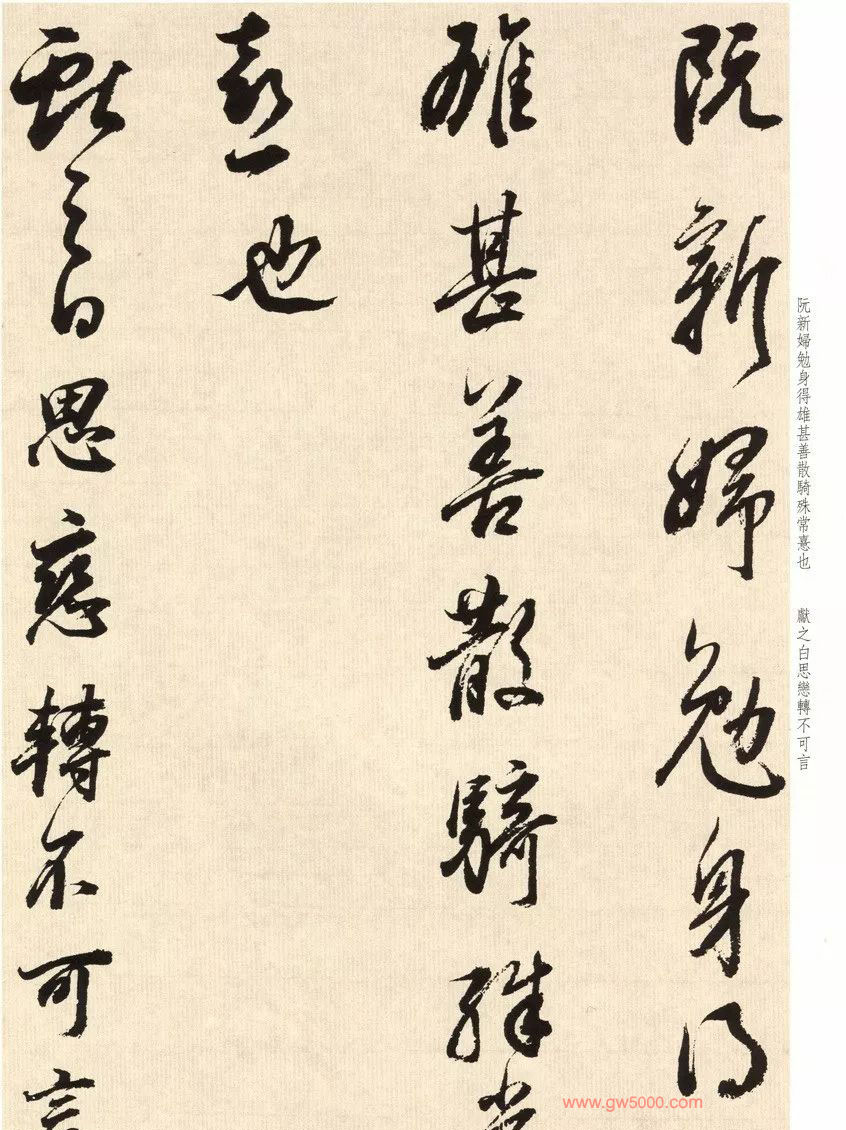 阮新婦勉身得
雄甚善散騎殊常
憙也
獻之白思戀轉不可言
阮新婦勉身得雄甚善散騎殊常憙也　獻之白思戀轉不可言
www.gw5000.com